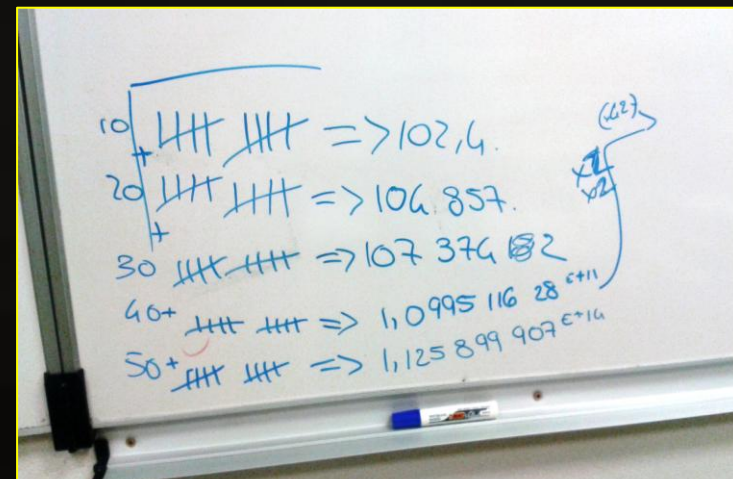 10 + 𝍸 𝍸 => 102,4.
20 + 𝍸 𝍸 => 104 857.
30 𝍸 𝍸 => 107 374 182
40+ 𝍸 𝍸 => 1,0995 116 28 E+11
50+ 𝍸 𝍸 => 1,125 899 907 E+14
x2
x2